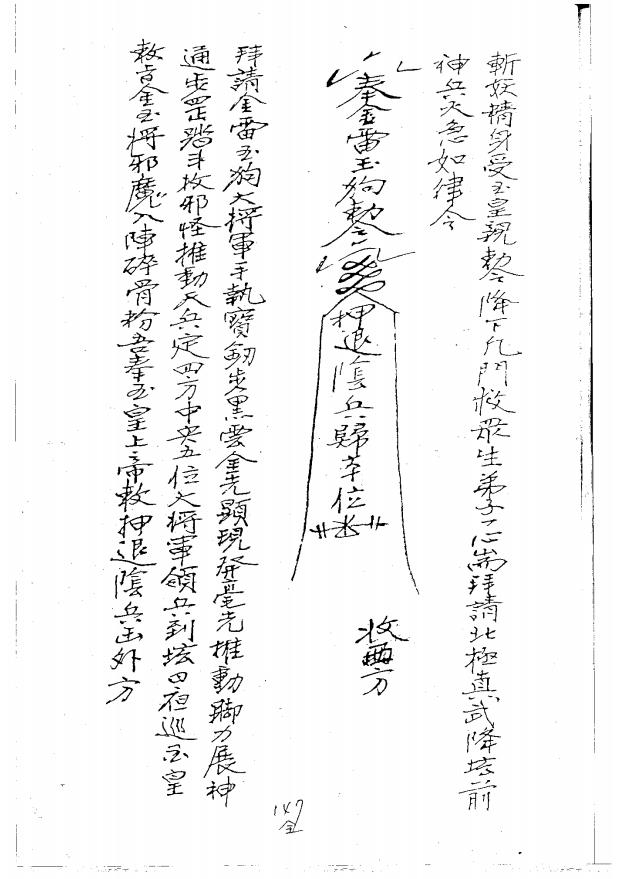 斬妖精身受玉皇親勅令降下凡門救眾生弟子一心耑拜請北極真武降坛前
神兵火急如律令
奉金雷玉狗勅令
押退陰兵歸本位
收西方
拜請金雷玉狗大將軍手執寶劍步黑雲金光顯現発毫光推動腳力展神
通步罡踏斗收邪怪推動天兵定四方中央五位大將軍領兵到坛日夜巡玉皇
敕旨金玉將邪魔入陣碎骨粉吾奉玉皇上帝敕押退陰兵出外方
147